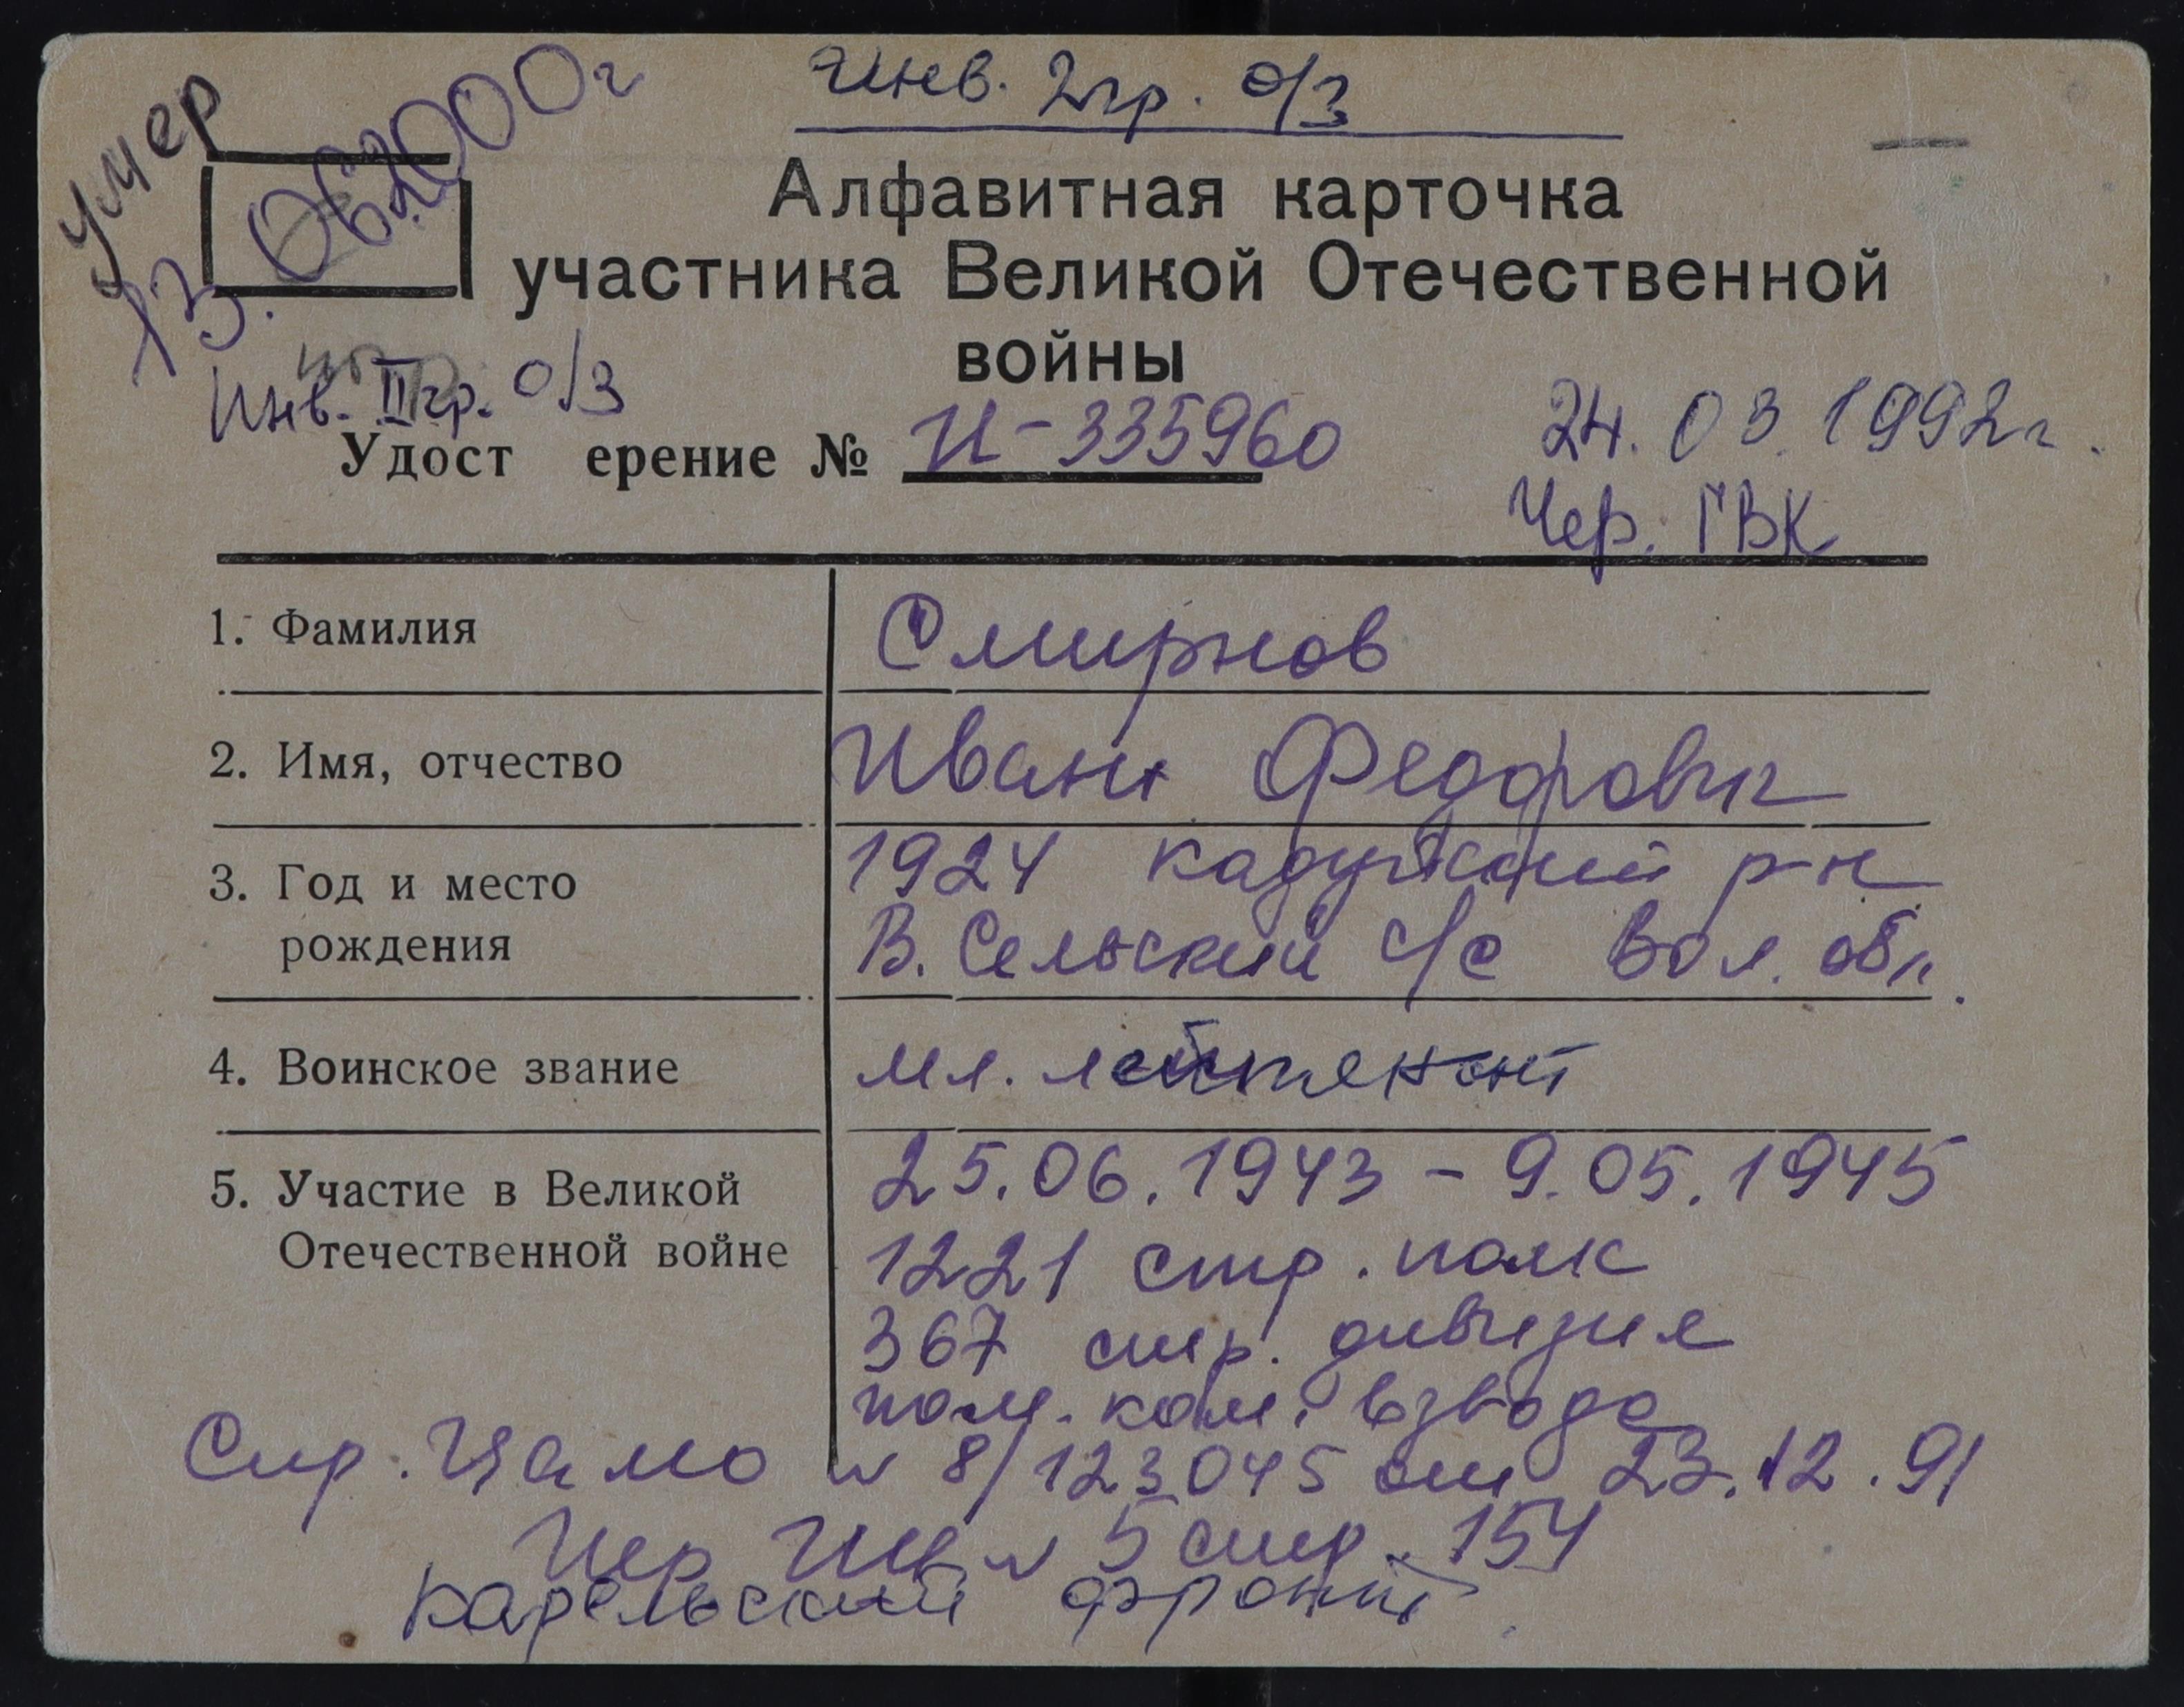 Инв. 2гр. о/з
умер
13.06.2000г
Алфавитная карточка
участника Великой Отечественной
войны
Инв. II гр. о/з
Удост ерение № И-335960
24.03.1992г.
Чер. ГВК
1. Фамилия Смирнов
2. Имя, отчество Иван Федорович
3. Год и место 1924 Кадуйский р-н
рождения В. Сельский с/с Вол. обл.
4. Воинское звание мл. лейтенант
5. Участие в Великой 25.06.1943 - 9.05.1945
Отечественной войне 1221 стр. полк
367 стр. дивизия
пом. ком. взвода
Спр. ЦАМО № 8/123045 от 23.12.91
№ 5 стр. 154
Карельский фронт